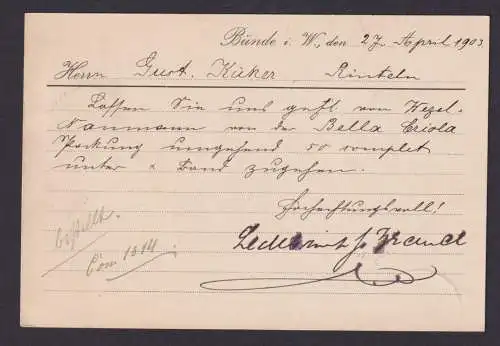 Bünde i. W., den 27. April 1903
Herrn Gust. Küker, Rinteln
Lassen Sie uns gefl. von Kezel-
Naumann von der Bella Criola
Packung umgehend 50 complet
unter × Band zugehen.
Hochachtungsvoll!
bestellt.
Com 1014